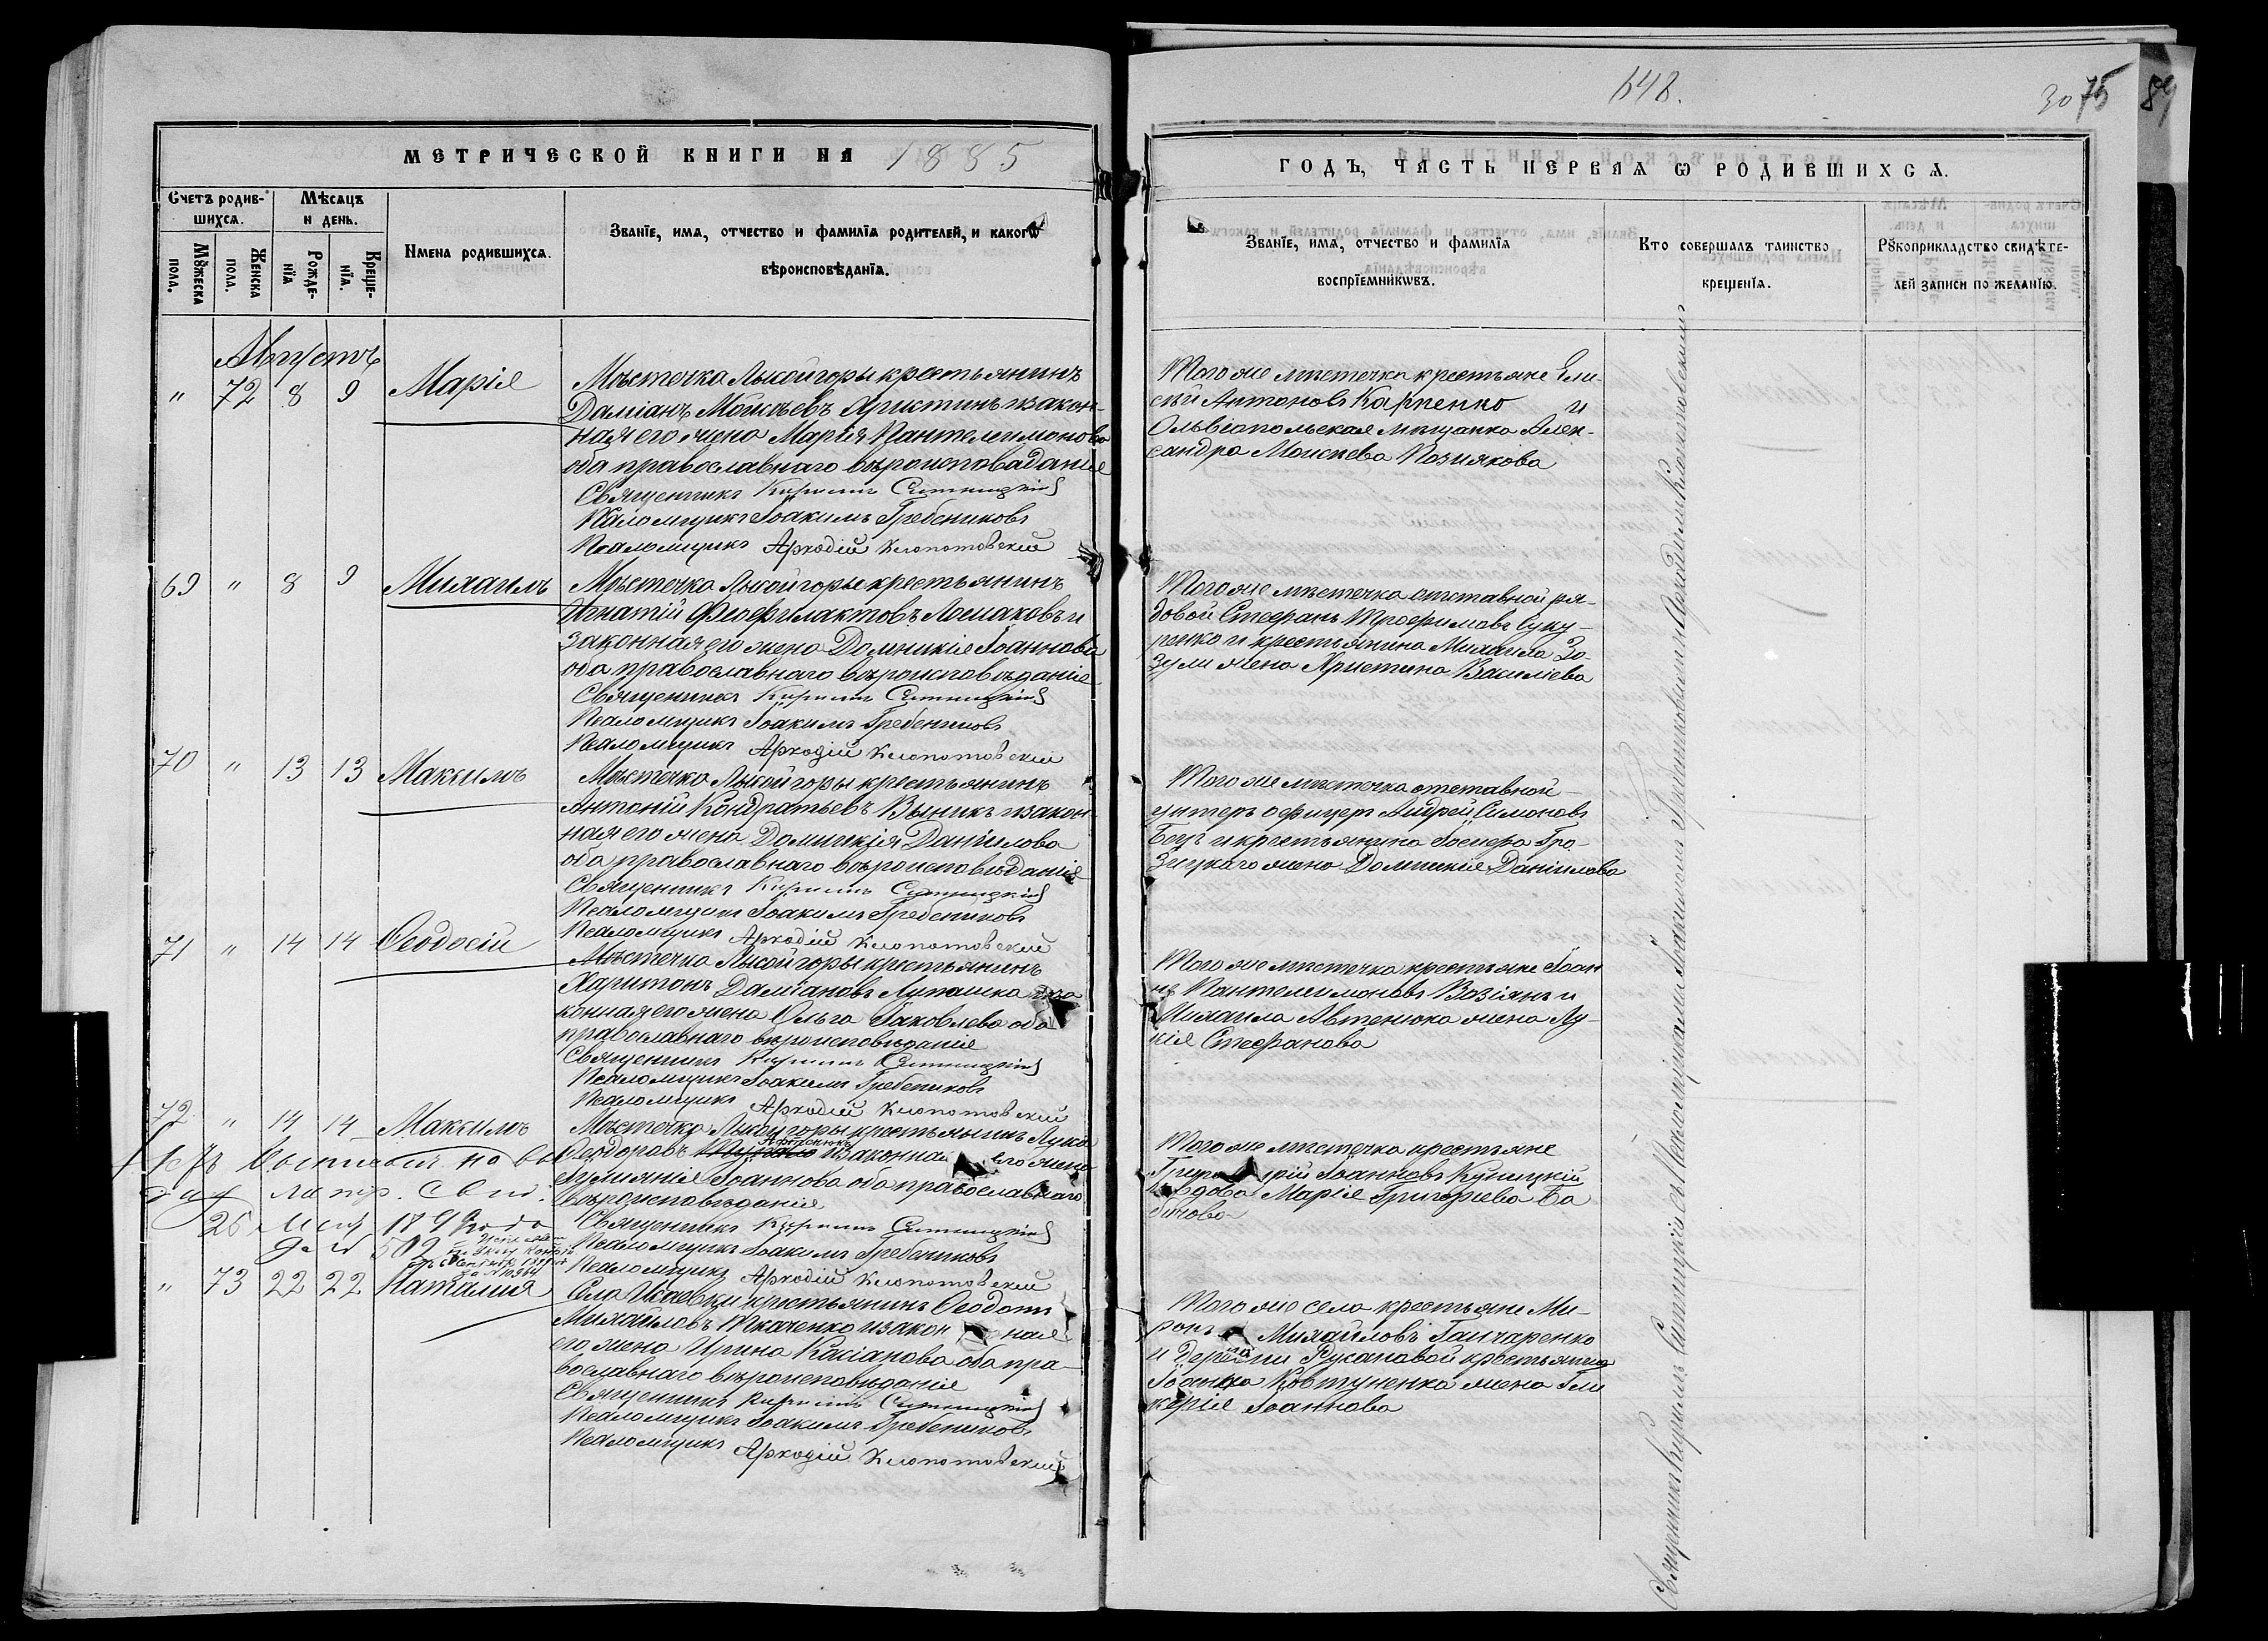 648.
30 75 89
МЕТРИЧЕСКОЙ КНИГИ НА 1885
ГОДЪ, ЧАСТЬ ПЕРВАЯ Ѡ РОДИВШИХСѦ.
Счетъ родив-
шихсѧ.
Мѣсѧцъ
и день.
Мꙋжеска
пола.
Женска
пола.
Рожде-
нїѧ
Креще-
нїѧ.
Имена родившихсѧ.
Званїе, имѧ, отчество и фамилїѧ родителей, и какогѡ
вѣроисповѣданїѧ.
Званїе, имѧ, отчество и фамилїѧ
воспрїемникѡвъ.
Кто совершалъ таинство
крещенїѧ.
Рꙋкоприкладство свидѣте-
лей записи по желанїю.
Августъ
" 72 8 9 Марія
Мѣстечка Лысойгоры крестьянинъ
Даміанъ Моѵсѣевъ Христинъ и закон-
ная его жена Марія Пантелеимонова
оба православнаго вѣроисповѣданія
Священникъ Кириллъ Ситницкій
Псаломщикъ Іоакимъ Гребениковъ
Псаломщикъ Аркадій Клопотовскій
Того же мѣстечка крестьяне Ели-
сѣй Антоновъ Карпенко и
Ольвіопольская мѣщанка Алек-
сандра Моисеева Познякова
69 " 8 9 Михаилъ
Мѣстечка Лысойгоры крестьянинъ
Игнатій Феофилактовъ Ломаковъ и
законная его жена Домникія Іоаннова
оба православнаго вѣроисповѣданія
Священникъ Кириллъ Ситницкій
Псаломщикъ Іоакимъ Гребениковъ
Псаломщикъ Аркадій Клопотовскій
Того же мѣстечка отставной ря-
довой Стефанъ Трофимовъ Суку-
ренко и крестьянина Михаила Зо-
зули жена Христина Василіева
70 " 13 13 Максимъ
Мѣстечка Лысойгоры крестьянинъ
Антоній Кондратьевъ Выникъ и закон
ная его жена Домникія Даніилова
оба православнаго вѣроисповѣданія
Священникъ Кириллъ Ситницкій
Псаломщикъ Іоакимъ Гребениковъ
Псаломщикъ Аркадій Клопотовскій
Того же мѣстечка отставной
унтеръ офицеръ Андрей Симоновъ
Бецъ и крестьянина Іосифа Гро-
зицкого жена Домникія Даніилова
71 " 14 14 Ѳеодосій
Мѣстечка Лысойгоры крестьянинъ
Харитонъ Даміановъ Лупашка и за
конная его жена Ольга Іаковлева оба
православнаго вѣроисповѣданія
Священникъ Кириллъ Ситницкій
Псаломщикъ Іоакимъ Гребениковъ
Псаломщикъ Аркадій Клопотовскій
Того же мѣстечка крестьяне Іоан
нъ Пантелеимоновъ Возіянъ и
Михаила Автенюка жена Лу-
кія Стефанова
72 " 14 14 Максимъ
Мѣстечка Лысойгоры крестьянинъ Лука
Автенюкъ
Ѳеодоровъ и законная его жена
Іуліанія Іоаннова оба православнаго
вѣроисповѣданія
Священникъ Кириллъ Ситницкій
Псаломщикъ Іоакимъ Гребениковъ
Псаломщикъ Аркадій Клопотовскій
Того же мѣстечка крестьяне
Григорій Іоанновъ Куницкій
и вдова Марія Григорьева Ба
бичова
метр. свид.
за № 502
за № 10964
" 73 22 22 Наталия
Села Исаевки крестьянинъ Ѳеодотъ
Михайловъ Ткаченко и законная
его жена Ирина Касіанова оба пра-
вославнаго вѣроисповѣданія
Священникъ Кириллъ Ситницкій
Псаломщикъ Іоакимъ Гребениковъ
Псаломщикъ Аркадій Клопотовскій
Того же села крестьяне Ми-
ронъ Михайловъ Ганчаренко
и деревни Русановой крестьянина
Іоанна Ковтуненка жена Гли
керія Іоаннова
Священникъ Кириллъ Ситницкій съ Псаломщиками Іоакимомъ Гребениковымъ и Аркадіемъ Клопотовскимъ